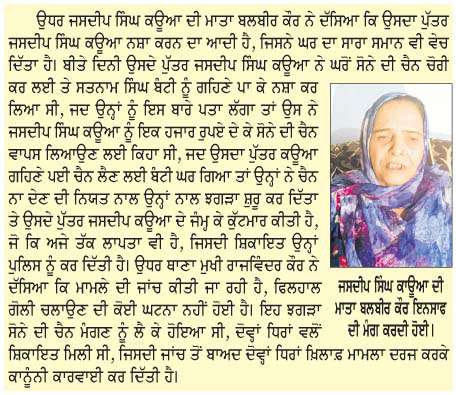 ਉਧਰ ਜਸਦੀਪ ਸਿੰਘ ਕਊਆ ਦੀ ਮਾਤਾ ਬਲਬੀਰ ਕੌਰ ਨੇ ਦੱਸਿਆ ਕਿ ਉਸਦਾ ਪੁੱਤਰ
ਜਸਦੀਪ ਸਿੰਘ ਕਊਆ ਨਸ਼ਾ ਕਰਨ ਦਾ ਆਦੀ ਹੈ, ਜਿਸਨੇ ਘਰ ਦਾ ਸਾਰਾ ਸਮਾਨ ਵੀ ਵੇਚ
ਦਿੱਤਾ ਹੈ। ਬੀਤੇ ਦਿਨੀ ਉਸਦੇ ਪੁੱਤਰ ਜਸਦੀਪ ਸਿੰਘ ਕਊਆ ਨੇ ਘਰੋਂ ਸੋਨੇ ਦੀ ਚੈਨ ਚੋਰੀ
ਕਰ ਲਈ ਤੇ ਸਤਨਾਮ ਸਿੰਘ ਬੰਟੀ ਨੂੰ ਗਹਿਣੇ ਪਾ ਕੇ ਨਸ਼ਾ ਕਰ
ਲਿਆ ਸੀ, ਜਦ ਉਨ੍ਹਾਂ ਨੂੰ ਇਸ ਬਾਰੇ ਪਤਾ ਲੱਗਾ ਤਾਂ ਉਸ ਨੇ
ਜਸਦੀਪ ਸਿੰਘ ਕਊਆ ਨੂੰ ਇਕ ਹਜਾਰ ਰੁਪਏ ਦੇ ਕੇ ਸੋਨੇ ਦੀ ਚੈਨ
ਵਾਪਸ ਲਿਆਉਣ ਲਈ ਕਿਹਾ ਸੀ, ਜਦ ਉਸਦਾ ਪੁੱਤਰ ਕਊਆ
ਗਹਿਣੇ ਪਈ ਚੈਨ ਲੈਣ ਲਈ ਬੰਟੀ ਘਰ ਗਿਆ ਤਾਂ ਉਨ੍ਹਾਂ ਨੇ ਚੈਨ
ਨਾ ਦੇਣ ਦੀ ਨਿਯਤ ਨਾਲ ਉਨ੍ਹਾਂ ਨਾਲ ਝਗੜਾ ਸ਼ੁਰੂ ਕਰ ਦਿੱਤਾ
ਤੇ ਉਸਦੇ ਪੁੱਤਰ ਜਸਦੀਪ ਕਊਆ ਦੇ ਜੰਮ੍ਹ ਕੇ ਕੁੱਟਮਾਰ ਕੀਤੀ ਹੈ,
ਜੋ ਕਿ ਅਜੇ ਤੱਕ ਲਾਪਤਾ ਵੀ ਹੈ, ਜਿਸਦੀ ਸ਼ਿਕਾਇਤ ਉਨ੍ਹਾਂ
ਪੁਲਿਸ ਨੂੰ ਕਰ ਦਿੱਤੀ ਹੈ। ਉਧਰ ਥਾਣਾ ਮੁਖੀ ਰਾਜਵਿੰਦਰ ਕੌਰ ਨੇ
ਦੱਸਿਆ ਕਿ ਮਾਮਲੇ ਦੀ ਜਾਂਚ ਕੀਤੀ ਜਾ ਰਹੀ ਹੈ, ਫਿਲਹਾਲ
ਗੋਲੀ ਚਲਾਉਣ ਦੀ ਕੋਈ ਘਟਨਾ ਨਹੀਂ ਹੋਈ ਹੈ। ਇਹ ਝਗੜਾ
ਸੋਨੇ ਦੀ ਚੈਨ ਮੰਗਣ ਨੂੰ ਲੈ ਕੇ ਹੋਇਆ ਸੀ, ਦੋਵ੍ਹਾਂ ਧਿਰਾਂ ਵਲੋਂ
ਸ਼ਿਕਾਇਤ ਮਿਲੀ ਸੀ, ਜਿਸਦੀ ਜਾਂਚ ਤੋਂ ਬਾਅਦ ਦੋਵ੍ਹਾਂ ਧਿਰਾਂ ਖ਼ਿਲਾਫ਼ ਮਾਮਲਾ ਦਰਜ ਕਰਕੇ
ਕਾਨੂੰਨੀ ਕਾਰਵਾਈ ਕਰ ਦਿੱਤੀ ਹੈ।
ਜਸਦੀਪ ਸਿੰਘ ਕਾਊਆ ਦੀ
ਮਾਤਾ ਬਲਬੀਰ ਕੌਰ ਇਨਸਾਫ
ਦੀ ਮੰਗ ਕਰਦੀ ਹੋਈ।